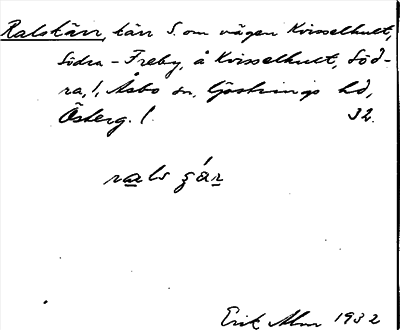 Ralskärr, kärr S. om vägen Kvisselhult,
Södra - Freby, å Kvisselhult, Söd-
ra, !, Åsbo sn, Göstrings hd,
Österg. l. 32.
rals ɕár
Erik Alm 1932